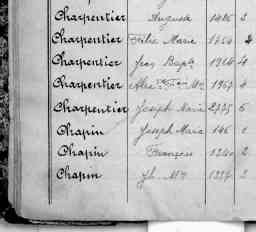 Charpentier Auguste 1486 2
Charpentier Félix Marie 1754 2
Charpentier Jean Bapte 1914 4
Charpentier 1967 4
Charpentier Joseph Marie 2775 6
Chapin Joseph Marie 146 1
Chapin François 1240 2
Chapin Jh. Mie 1227 2